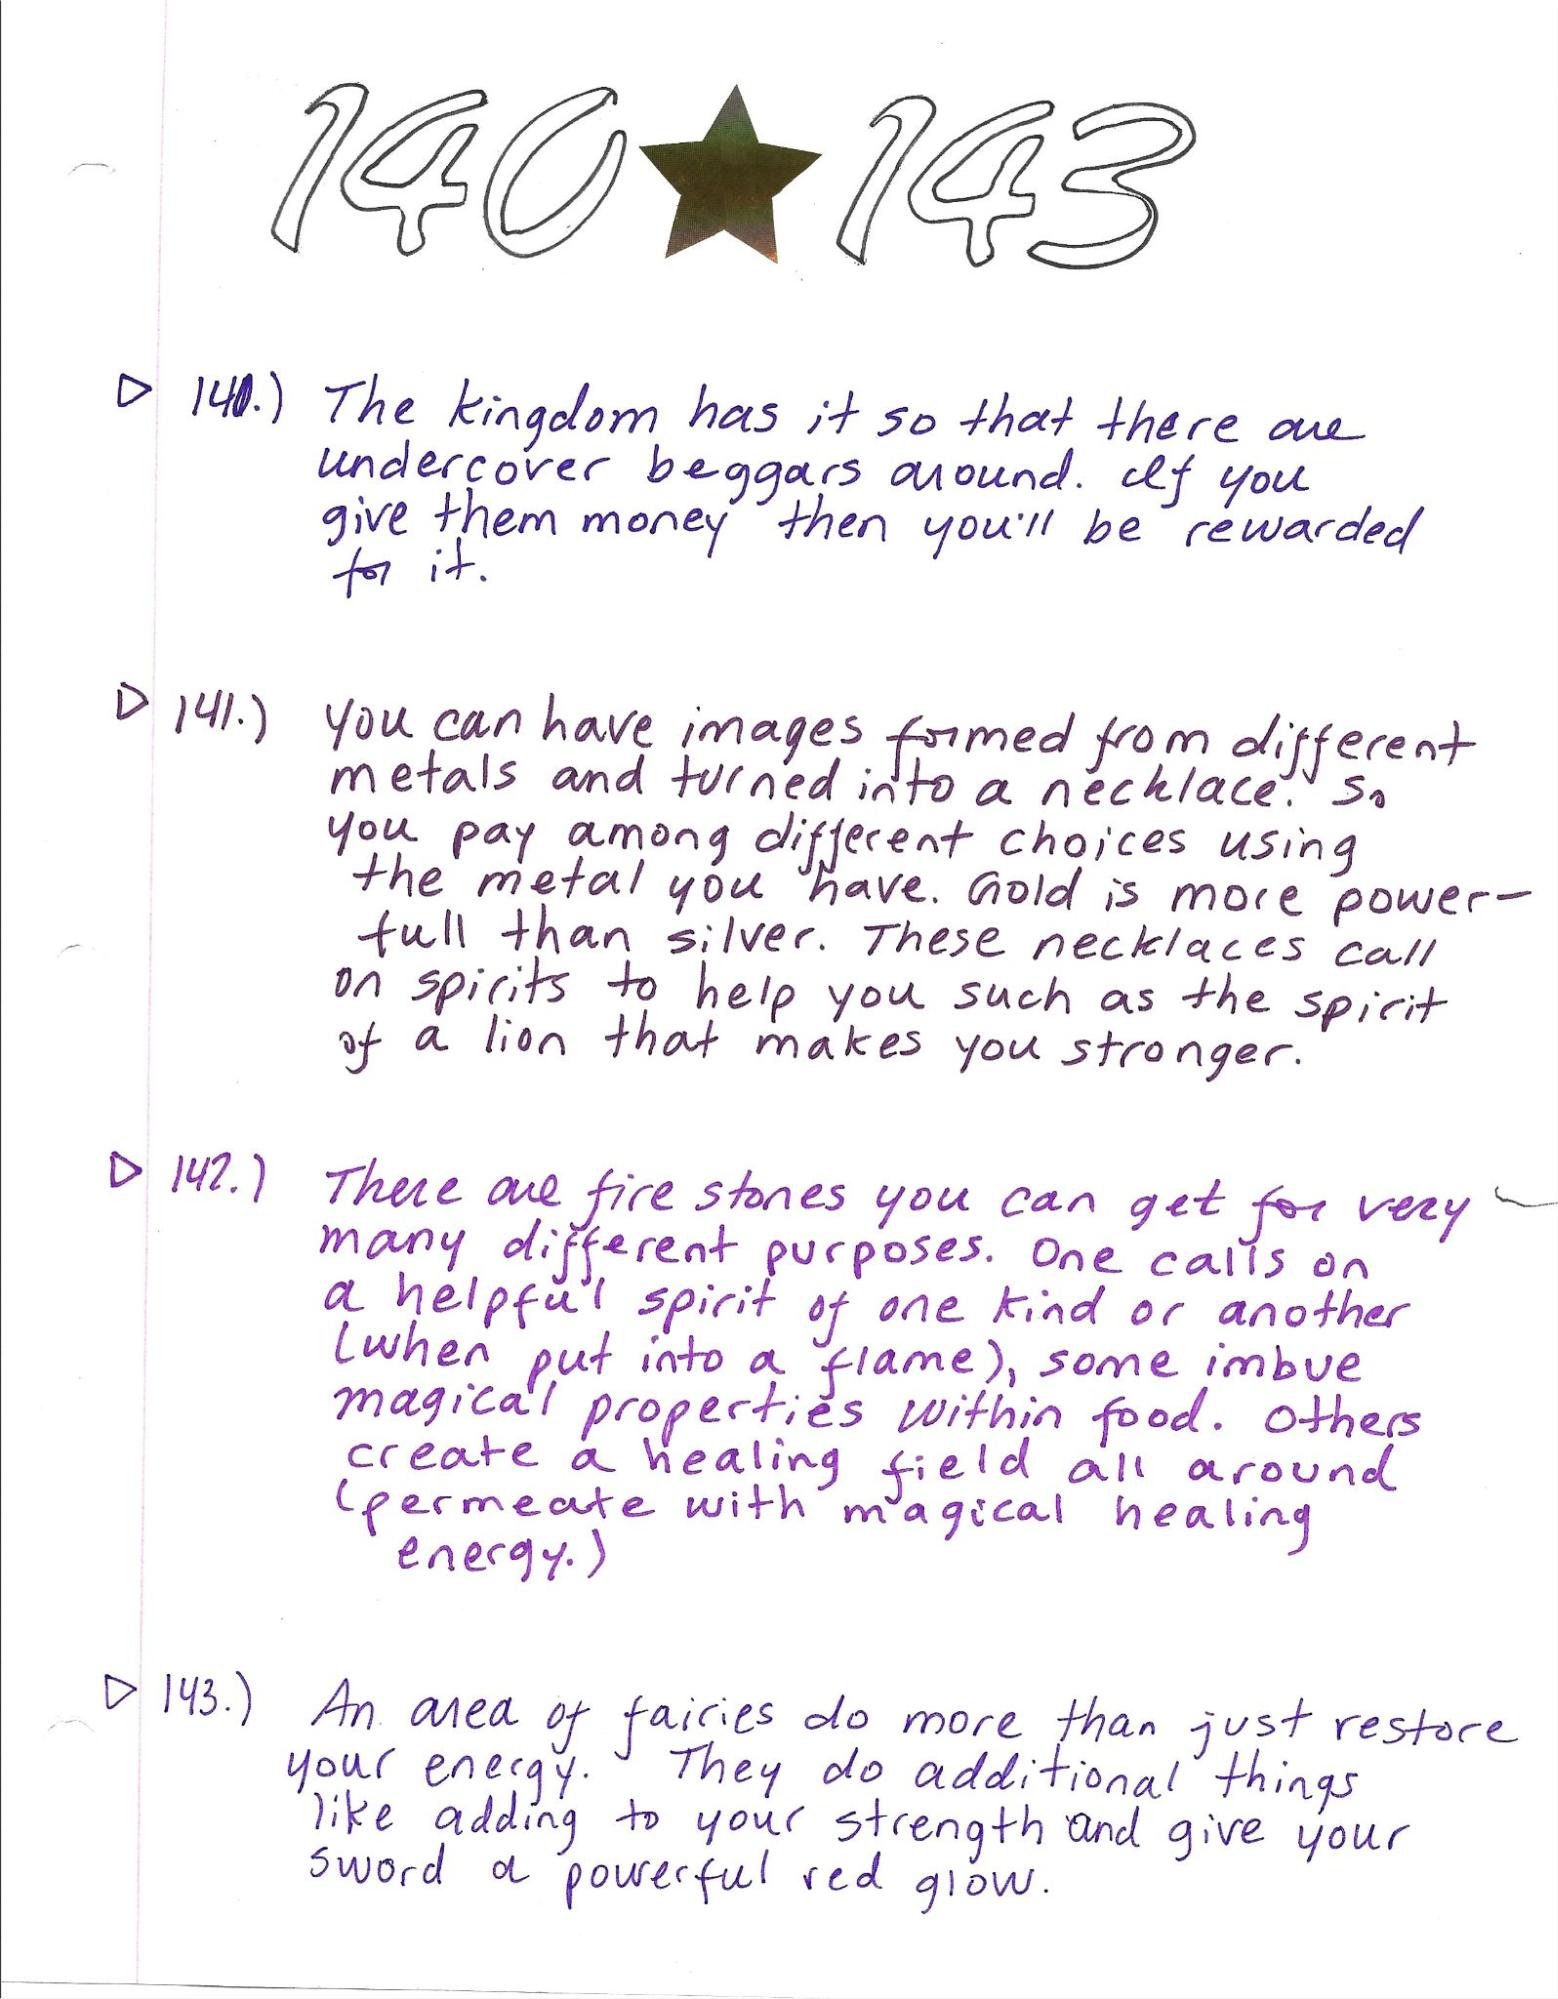 140 ★ 143
▷ 140.) The kingdom has it so that there are
undercover beggars around. If you
give them money then you'll be rewarded
for it.
▷ 141.) You can have images formed from different
metals and turned into a necklace. So
you pay among different choices using
the metal you have. Gold is more power-
full than silver. These necklaces call
on spirits to help you such as the spirit
of a lion that makes you stronger.
▷ 142.) There are fire stones you can get for very
many different purposes. One calls on
a helpful spirit of one kind or another
(when put into a flame), some imbue
magical properties within food. Others
create a healing field all around
(permeate with magical healing
energy.)
▷ 143.) An area of fairies do more than just restore
your energy. They do additional things
like adding to your strength and give your
sword a powerful red glow.